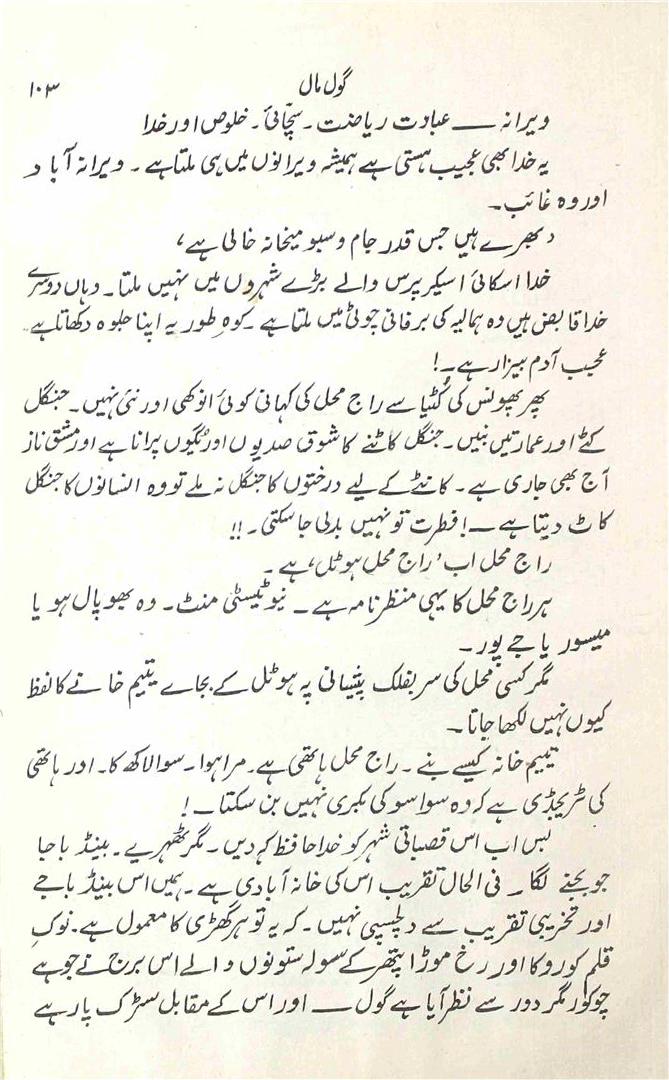 گول مال ۱۰۳
ویرانہ ــــ عبادت ریاضت ۔ سچّائی ۔ خلوص اور خدا
یہ خدا بھی عجیب ہستی ہے ہمیشہ ویرانوں میں ہی ملتا ہے ۔ ویرانہ آباد
اور وہ غائب ۔
'بھرے ہیں جس قدر جام و سبو میخانہ خالی ہے'
خدا اسکائی اسکیرپرس والے بڑے شہروں میں نہیں ملتا ۔ وہاں دوسرے
خدا قابض ہیں وہ ہمالیہ کی برفانی چوٹی میں ملتا ہے ۔ کوہِ طور پہ اپنا جلوہ دکھاتا ہے ۔
عجیب آدم بیزار ہے ۔ !
پھر پھونس کی کُٹیا سے راج محل کی کہانی کوئی انوکھی اور نئی نہیں ۔ جنگل
کٹے اور عمارتیں بنیں ۔ جنگل کاٹنے کا شوق صدیوں اور یُگوں پرانا ہے اور مشق ناز
آج بھی جاری ہے ۔ کاٹنے کے لیے درختوں کا جنگل نہ ملے تو وہ انسانوں کا جنگل
کاٹ دیتا ہے ــ ! فطرت تو نہیں بدلی جا سکتی ۔ !!
راج محل اب 'راج محل ہوٹل' ہے ۔
ہر راج محل کا یہی منظر نامہ ہے ۔ نیو ٹیسٹی منٹ ۔ وہ بھوپال ہو یا
میسور یا جے پور ۔
مگر کسی محل کی سربفلک پیشانی پہ ہوٹل کے بجائے یتیم خانے کا لفظ
کیوں نہیں لکھا جاتا ۔
یتیم خانہ کیسے بنے ۔ راج محل ہاتھی ہے ۔ مرا ہوا ۔ سوا لاکھ کا ۔ اور ہاتھی
کی ٹریجڈی ہے کہ وہ سوا سو کی بکری نہیں بن سکتا ۔ !
بس اب اس قصباتی شہر کو خدا حافظ کہہ دیں ۔ مگر ٹھہریے ۔ بینڈ باجا
جو بجنے لگا ۔ فی الحال تقریب اس کی خانہ آبادی ہے ۔ ہمیں اس بینڈ باجے
اور تخریبی تقریب سے دلچسپی نہیں ۔ کہ یہ تو ہر گھڑی کا معمول ہے ۔ نوکِ
قلم کو روکا اور رخ موڑا پتھر کے سولہ ستونوں والے اس برج نے جو ہے
چوکور مگر دور سے نظر آیا ہے گول ــــ اور اس کے مقابل سڑک پار ہے